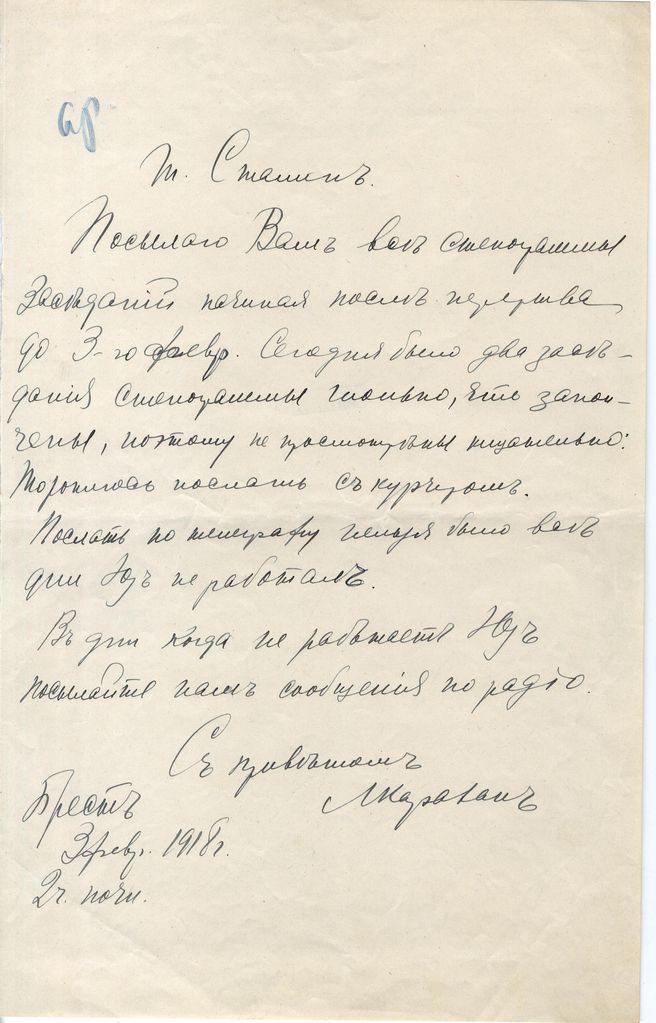 т. Сталинъ.
Посылаю Вамъ всѣ стенограммы
Засѣданій начиная послѣ перерыва
до 3-го февр. Сегодня было два засѣ-
данія стенограммы только, что закон-
чены, поэтому не просмотрѣны тщательно.
Тороплюсь послать съ курьеромъ.
Послать по телеграфу нельзя было всѣ
дни Юзъ не работалъ.
Въ дни когда не работаетъ Юзъ
посылайте намъ сообщенія по радіо.
Съ привѣтомъ
Брестъ ЛКараханъ
3 февр. 1918 г.
2 ч. ночи.